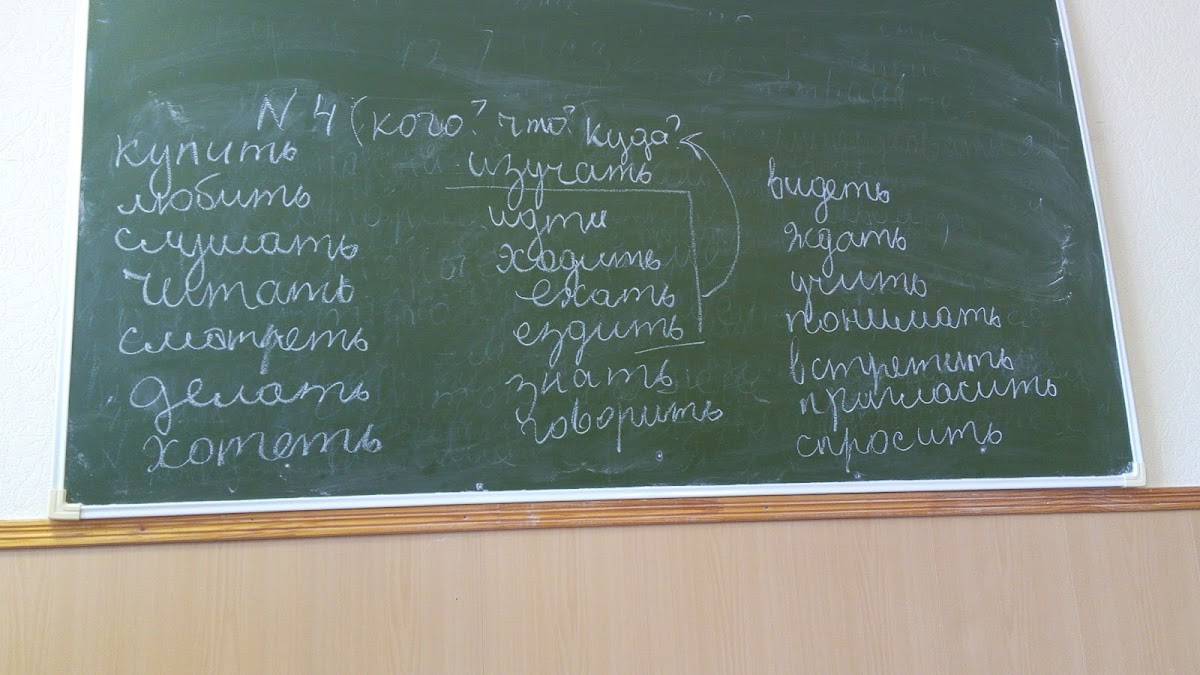 N 4 (кого? что? куда?
купить
любить
слушать
читать
смотреть
делать
хотеть
изучать
идти
ходить
ехать
ездить
знать
говорить
видеть
ждать
учить
понимать
встретить
пригласить
спросить